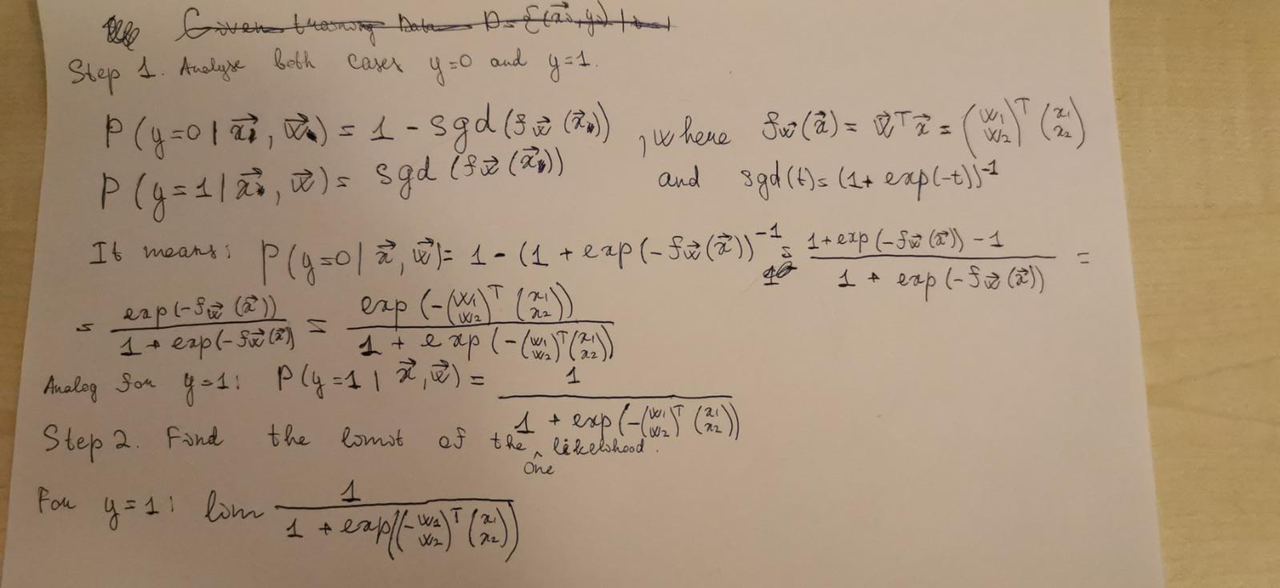 Given training Data D = {(x⃗, y) | i=1
Step 1. Analyse both cases y=0 and y=1.
P(y=0 | x⃗, w⃗) = 1 - sgd(f_w⃗(x⃗)) , where f_w⃗(x⃗) = w⃗ᵀx⃗ = (w₁ w₂)ᵀ (x₁ x₂)
P(y=1 | x⃗, w⃗) = sgd(f_w⃗(x⃗)) and sgd(t) = (1 + exp(-t))⁻¹
It means: P(y=0 | x⃗, w⃗) = 1 - (1 + exp(-f_w⃗(x⃗))⁻¹ = (1+exp(-f_w⃗(x⃗)) - 1) / (1 + exp(-f_w⃗(x⃗))) =
= exp(-f_w⃗(x⃗)) / (1 + exp(-f_w⃗(x⃗)) = exp(-(w₁ w₂)ᵀ (x₁ x₂)) / (1 + exp(-(w₁ w₂)ᵀ (x₁ x₂))
Analog for y=1: P(y=1 | x⃗, w⃗) = 1 / (1 + exp(-(w₁ w₂)ᵀ (x₁ x₂)))
Step 2. Find the limit of the One likelihood.
For y=1: lim 1 / (1 + exp((-w₁ w₂)ᵀ (x₁ x₂)))